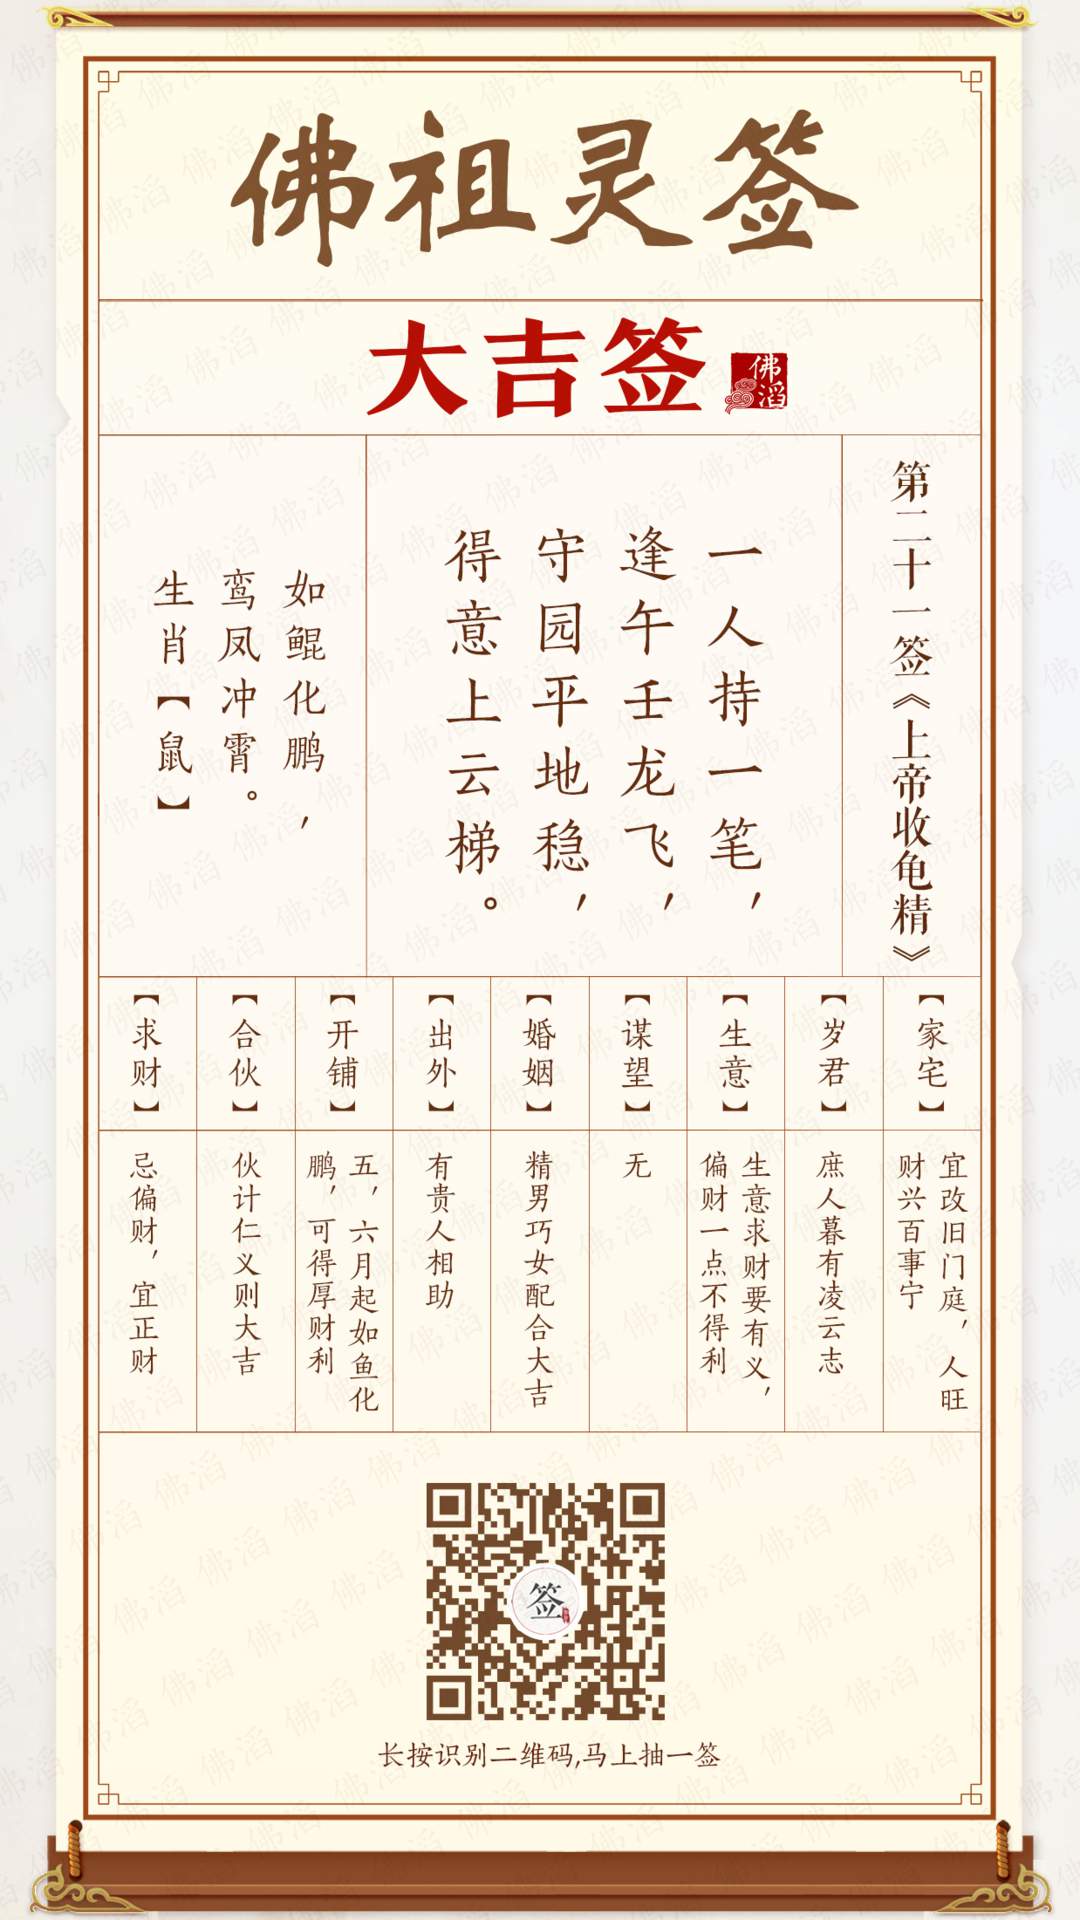 佛祖灵签
大吉签
佛滔
第二十一签《上帝收龟精》
一人持一笔，
逢午壬龙飞，
守园平地稳，
得意上云梯。
如鲲化鹏，
鸾凤冲霄。
生肖【鼠】
【家宅】
宜改旧门庭，人旺
财兴百事宁
【岁君】
庶人暮有凌云志
【生意】
生意求财要有义，
偏财一点不得利
【谋望】
无
【婚姻】
精男巧女配合大吉
【出外】
有贵人相助
【开铺】
五，六月起如鱼化
鹏，可得厚财利
【合伙】
伙计仁义则大吉
【求财】
忌偏财，宜正财
签
长按识别二维码,马上抽一签